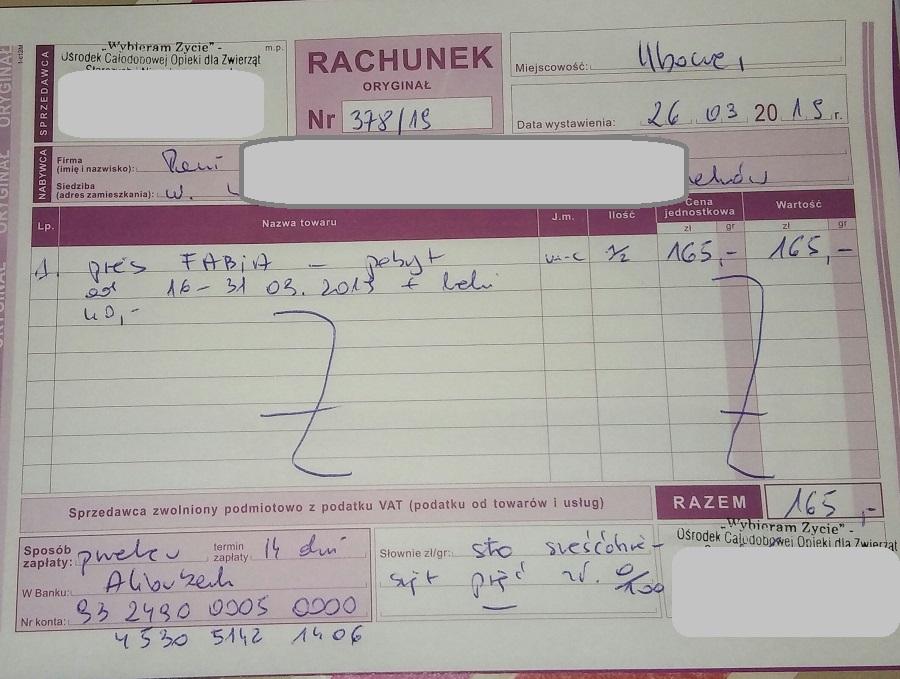 ORYGINAŁ
"Wybieram Życie" -
Ośrodek Całodobowej Opieki dla Zwierząt
m.p.
SPRZEDAWCA
RACHUNEK
ORYGINAŁ
Nr 378/19
Miejscowość:
Data wystawienia: 26 03 2019 r.
NABYWCA
Firma
(imię i nazwisko): Pani
Siedziba
(adres zamieszkania): w.
Lp. Nazwa towaru J.m. Ilość Cena jednostkowa Wartość
zł gr zł gr
1. pies FABiA – pobyt m-c 1/2 165,- 165,-
od 16-31 03. 2019 + leki
40,-
Sprzedawca zwolniony podmiotowo z podatku VAT (podatku od towarów i usług)
RAZEM 165,-
Sposób zapłaty: przelew termin zapłaty: 14 dni
W Banku:
Nr konta: 93 2490 0005 0000
4530 5142 1406
Słownie zł/gr: sto sześćdzie-
siąt pięć zł. 0/100
"Wybieram Życie" -
Ośrodek Całodobowej Opieki dla Zwierząt